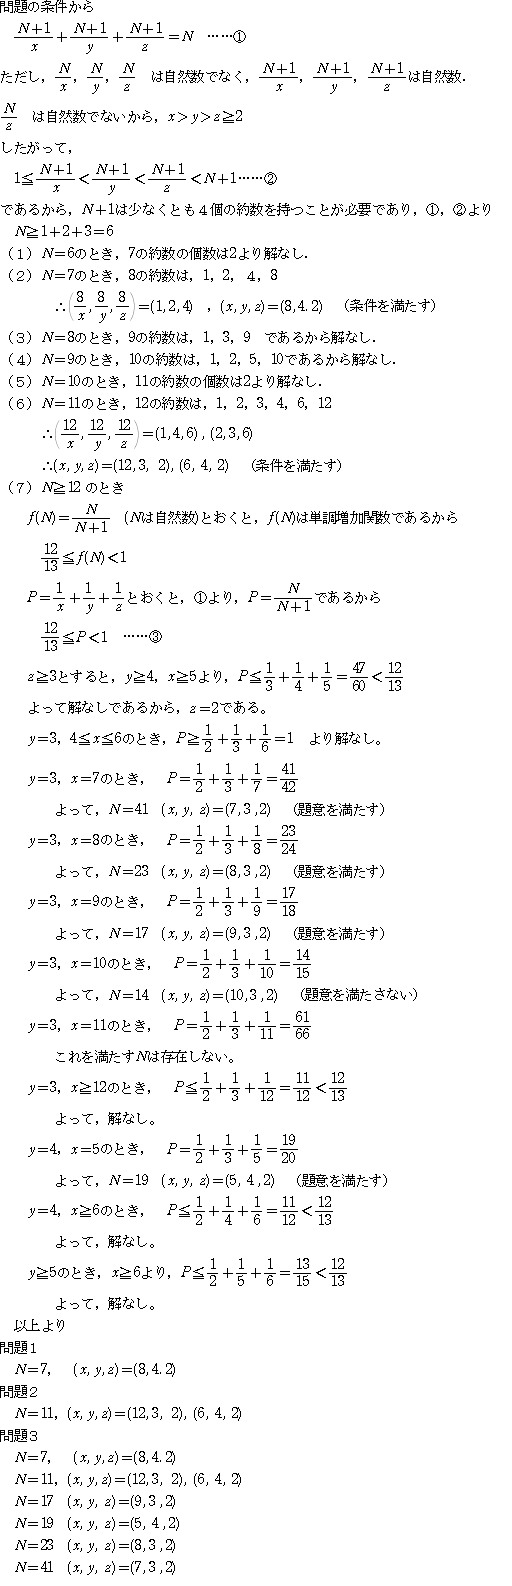 問題の条件から
(N+1)/x + (N+1)/y + (N+1)/z = N ……①
ただし, N/x, N/y, N/z は自然数でなく, (N+1)/x, (N+1)/y, (N+1)/z は自然数.
N/z は自然数でないから, x>y>z≧2
したがって,
1≦(N+1)/x<(N+1)/y<(N+1)/z<N+1……②
であるから, N+1は少なくとも４個の約数を持つことが必要であり, ①, ②より
N≧1+2+3=6
(１) N=6のとき, 7の約数の個数は2より解なし.
(２) N=7のとき, 8の約数は, 1, 2, ４, 8
∴(8/x, 8/y, 8/z)=(1,2,4) , (x, y, z)=(8,4.2) (条件を満たす)
(３) N=8のとき, 9の約数は, 1, 3, 9 であるから解なし.
(４) N=9のとき, 10の約数は, 1, 2, 5, 10であるから解なし.
(５) N=10のとき, 11の約数の個数は2より解なし.
(６) N=11のとき, 12の約数は, 1, 2, 3, 4, 6, 12
∴(12/x, 12/y, 12/z)=(1,4,6) , (2,3,6)
∴(x, y, z)=(12,3, 2), (6, 4, 2) (条件を満たす)
(７) N≧12 のとき
f(N)=N/(N+1) (Nは自然数)とおくと, f(N)は単調増加関数であるから
12/13≦f(N)<1
P=1/x+1/y+1/zとおくと, ①より, P=N/(N+1)であるから
12/13≦P<1 ……③
z≧3とすると, y≧4, x≧5より, P≦1/3+1/4+1/5=47/60<12/13
よって解なしであるから, z=2である。
y=3, 4≦x≦6のとき, P≧1/2+1/3+1/6=1 より解なし。
y=3, x=7のとき, P=1/2+1/3+1/7=41/42
よって, N=41 (x, y, z)=(7,3 ,2) (題意を満たす)
y=3, x=8のとき, P=1/2+1/3+1/8=23/24
よって, N=23 (x, y, z)=(8,3 ,2) (題意を満たす)
y=3, x=9のとき, P=1/2+1/3+1/9=17/18
よって, N=17 (x, y, z)=(9,3 ,2) (題意を満たす)
y=3, x=10のとき, P=1/2+1/3+1/10=14/15
よって, N=14 (x, y, z)=(10,3 ,2) (題意を満たさない)
y=3, x=11のとき, P=1/2+1/3+1/11=61/66
これを満たすNは存在しない。
y=3, x≧12のとき, P≦1/2+1/3+1/12=11/12<12/13
よって, 解なし。
y=4, x=5のとき, P=1/2+1/3+1/5=19/20
よって, N=19 (x, y, z)=(5, 4 ,2) (題意を満たす)
y=4, x≧6のとき, P≦1/2+1/4+1/6=11/12<12/13
よって, 解なし。
y≧5のとき, x≧6より, P≦1/2+1/5+1/6=13/15<12/13
よって, 解なし。
以上より
問題１
N=7, (x, y,z)=(8,4.2)
問題２
N=11, (x, y,z)=(12,3, 2), (6, 4, 2)
問題３
N=7, (x, y,z)=(8,4.2)
N=11, (x, y,z)=(12,3, 2), (6, 4, 2)
N=17 (x, y, z)=(9,3 ,2)
N=19 (x, y, z)=(5, 4 ,2)
N=23 (x, y, z)=(8,3 ,2)
N=41 (x, y, z)=(7,3 ,2)